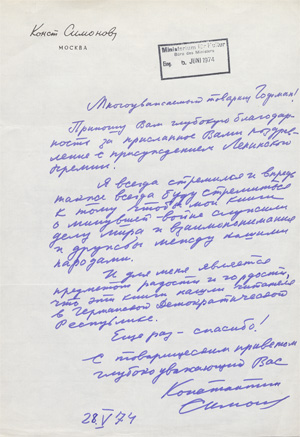 Конст Симонов
МОСКВА
Ministerium für Kultur
Büro des Ministers
Eing. 5. JUNI 1974
Многоуважаемый товарищ Гофман!
Приношу Вам глубокую благодар-
ность за присланное Вами поздрав-
ление с присуждением Ленинской
премии.
Я всегда стремился и впредь
также всегда буду стремиться
к тому чтобы мои книги
о минувшей войне служили
делу мира и взаимопонимания
и дружбы между нашими
народами.
И для меня является
предметом радости и гордости,
что эти книги нашли читателя
в Германской Демократической
Республике.
Еще раз – спасибо!
С товарищеским приветом
глубокоуважающий Вас
Константин
Симонов
28 V 74